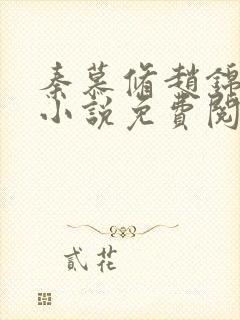 秦慕脩趙錦
小說免費閱
貳花